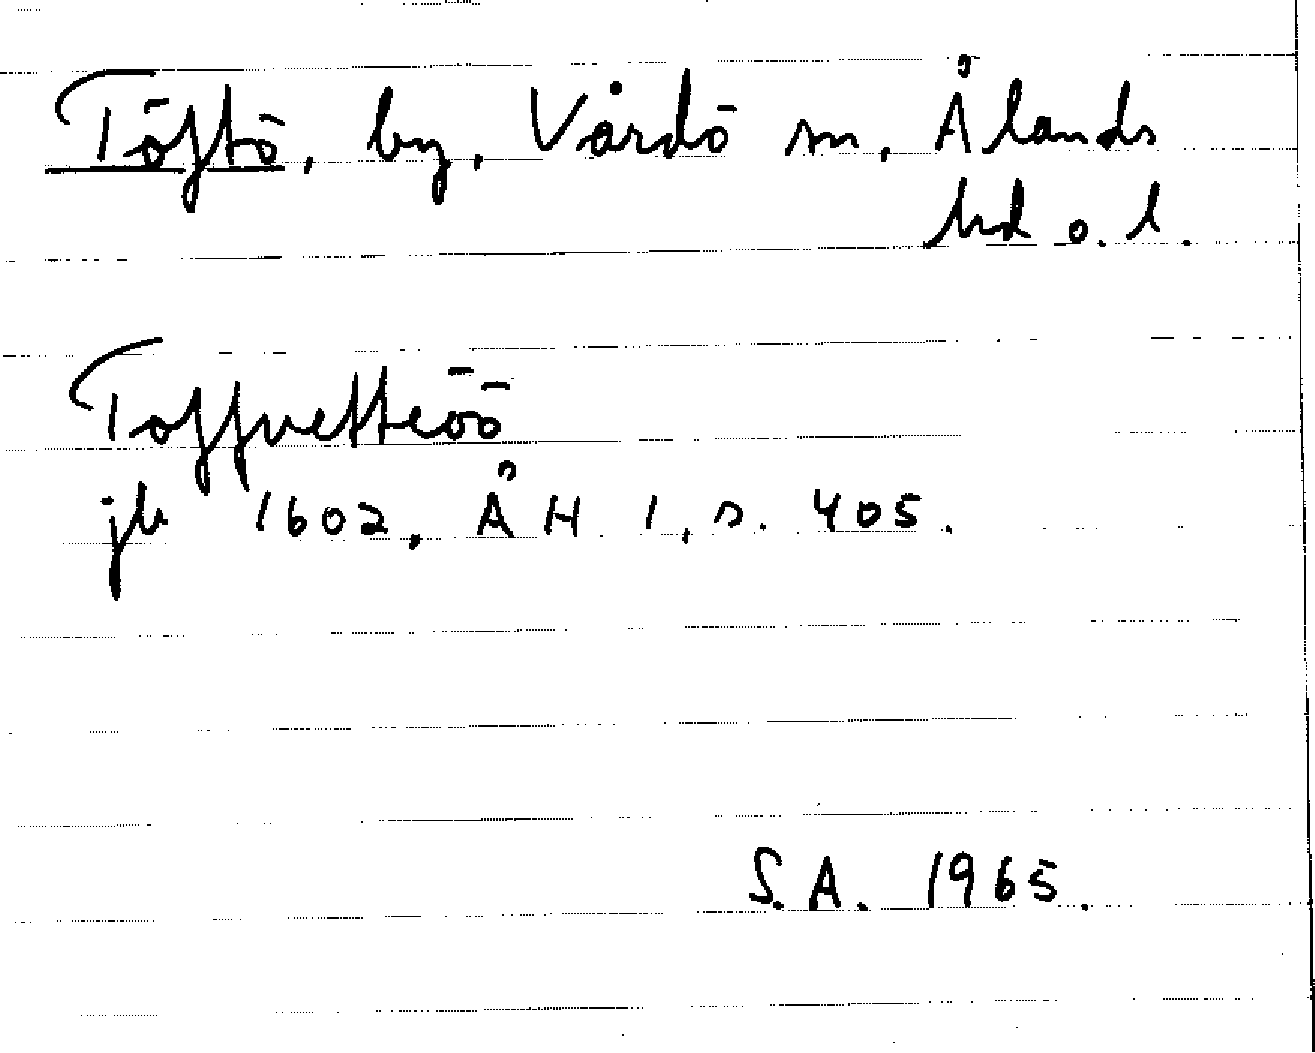 Töftö, by, Vårdö sn, Ålands
hd o. l.
Toffuetteöö
jb 1602, ÅH 1, s. 405.
S.A. 1965.